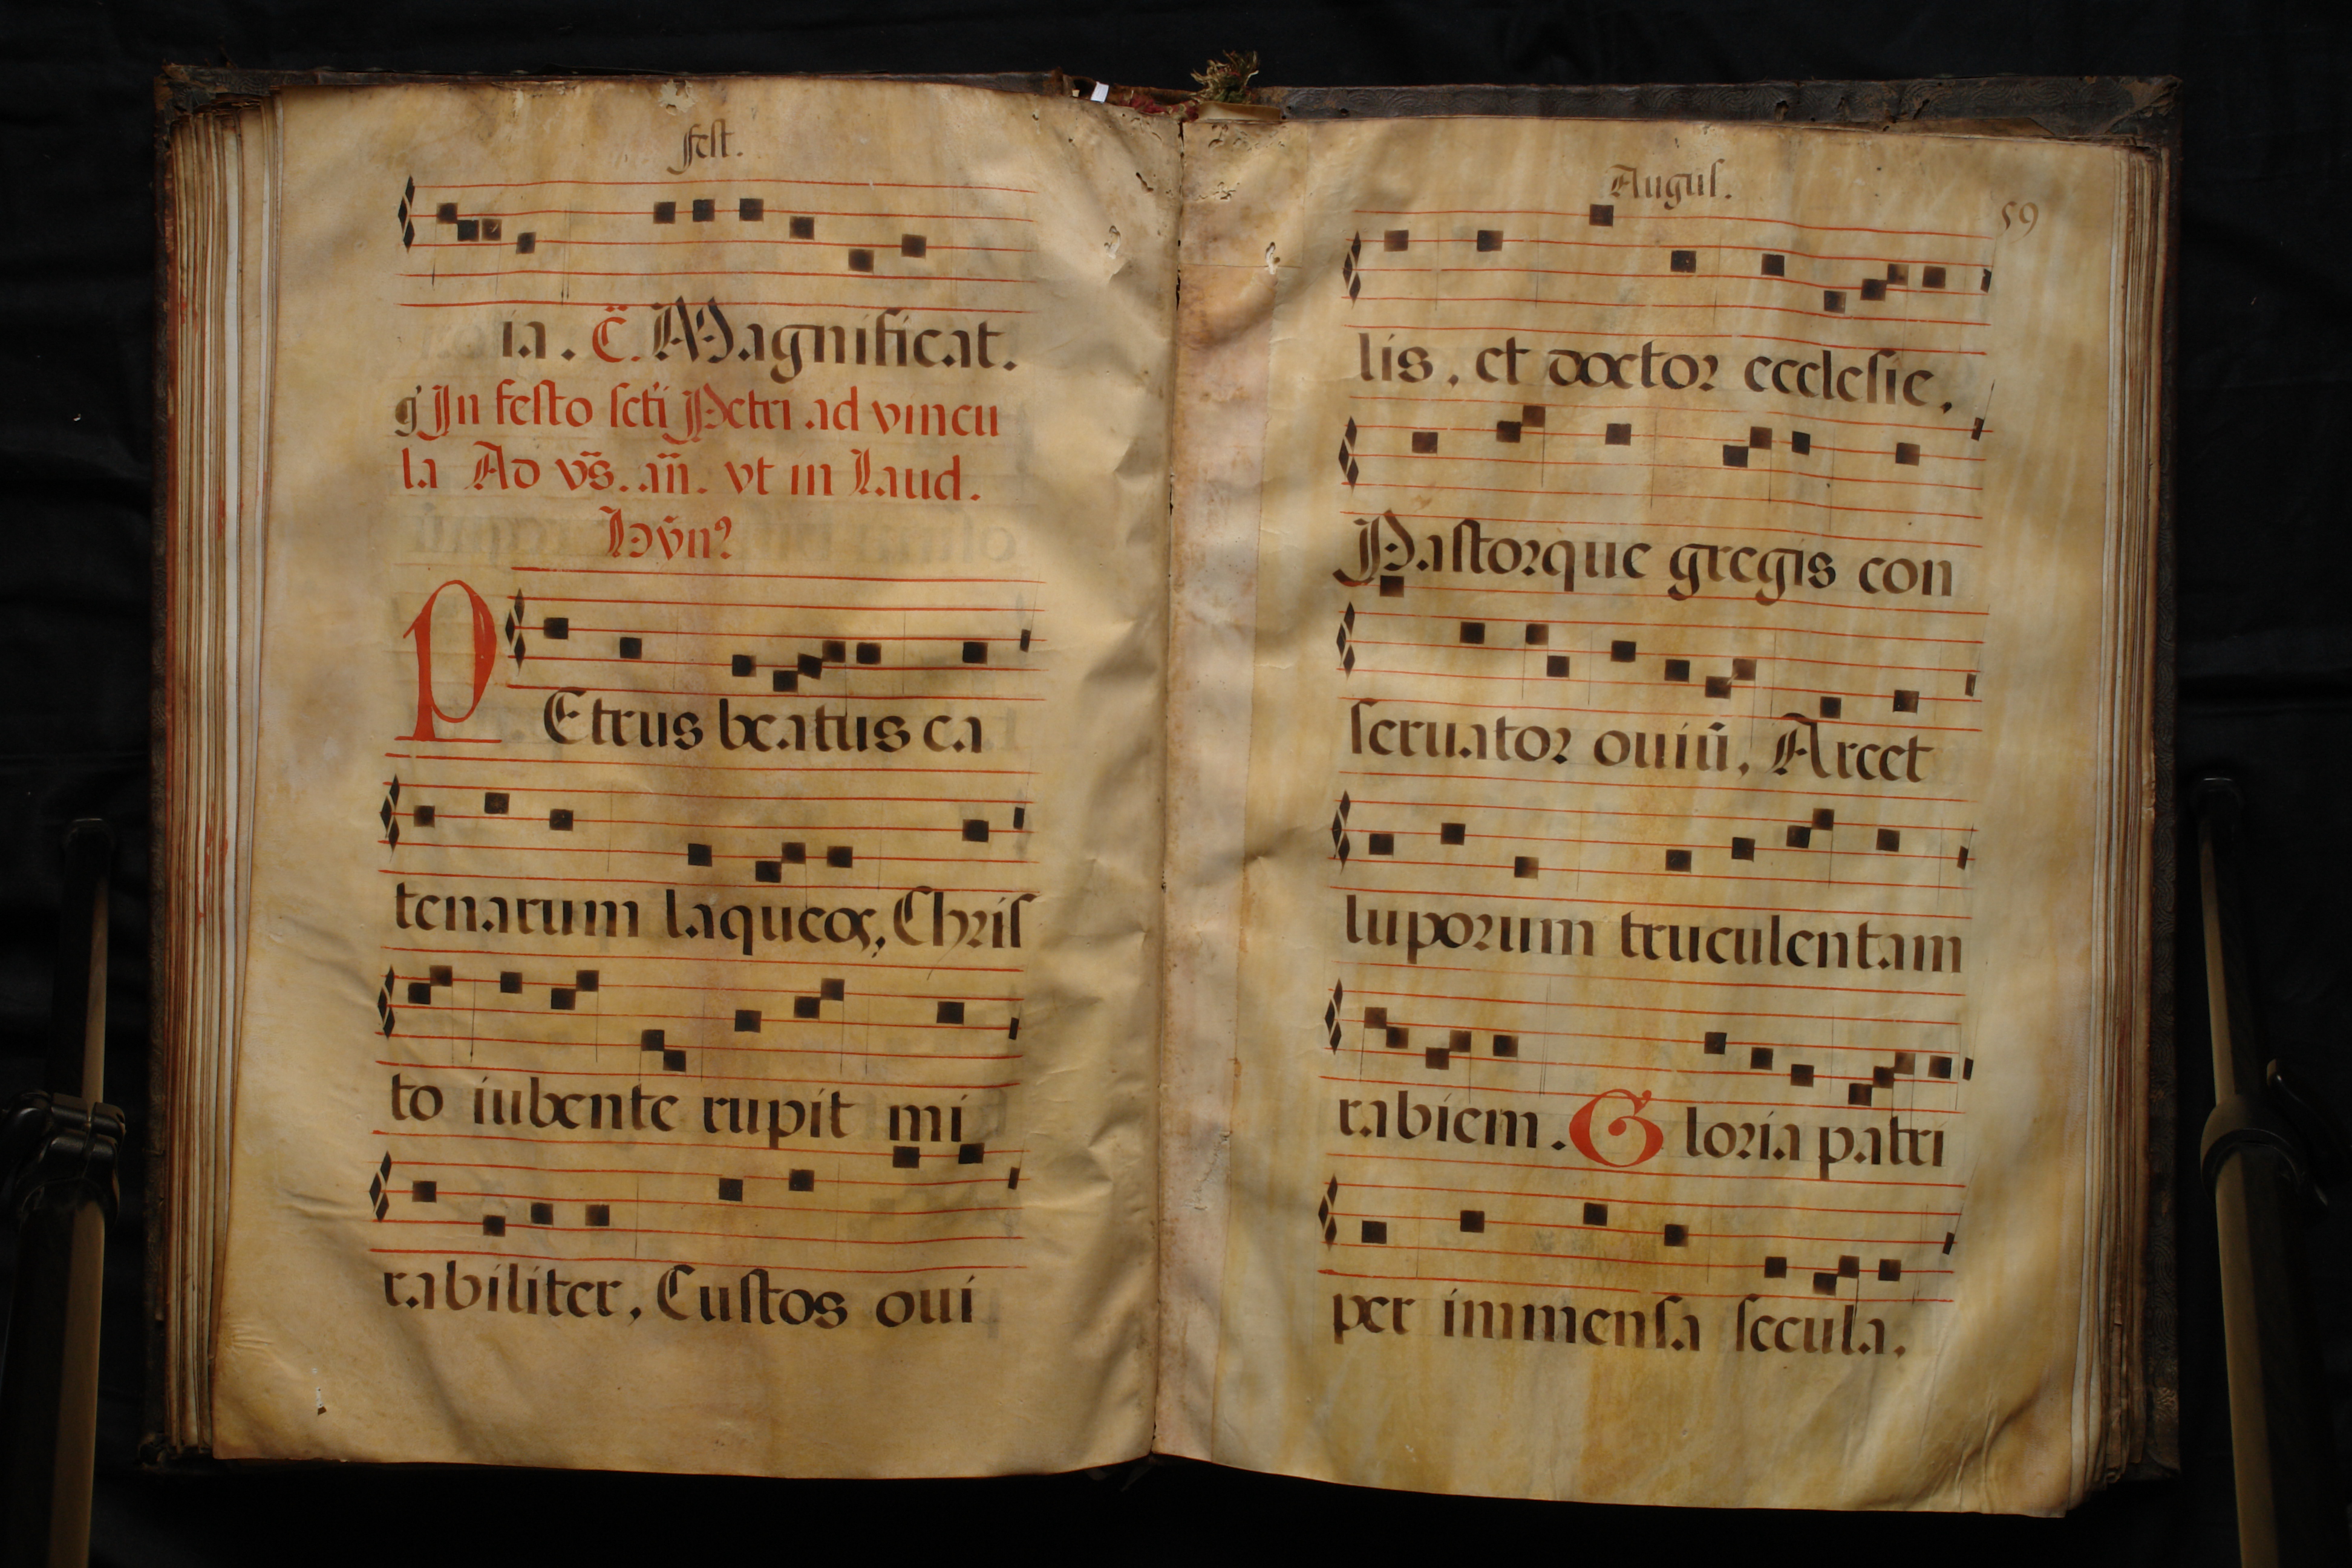 fest.
ia. C̃. Magnificat.
In festo scti Petri ad vincu
la Ad vs̃. añ. vt in Laud.
Hỹnꝰ
PEtrus beatus ca
tenarum laqueos, Chris
to iubente rupit mi
rabiliter, Custos oui
Augus.
59
lis, et doctor ecclesie,
Pastorque gregis con
seruator ouiũ, Arcet
luporum truculentam
rabiem. Gloria patri
per immensa secula.